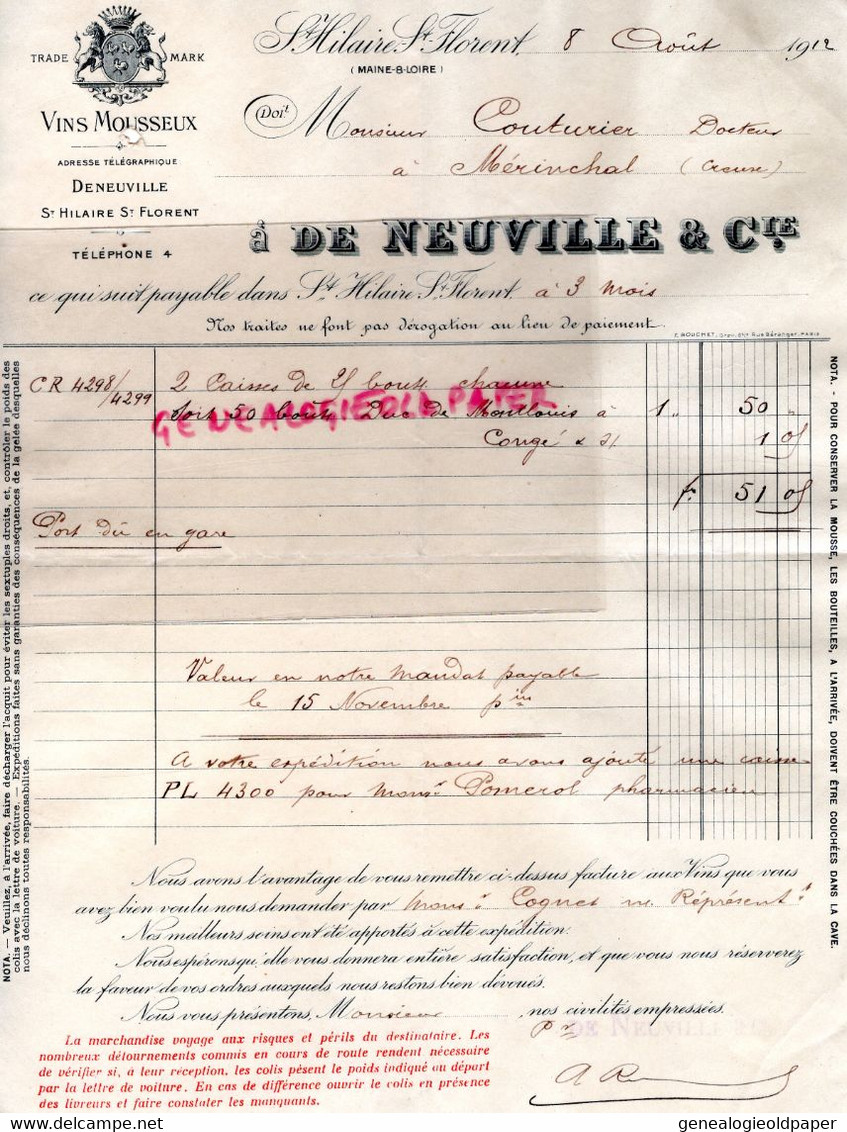 TRADE MARK
VINS MOUSSEUX
ADRESSE TÉLÉGRAPHIQUE
DENEUVILLE
ST HILAIRE ST FLORENT
TÉLÉPHONE 4
St Hilaire, St Florent, 8 Août 1912
(MAINE-&-LOIRE)
Doit Monsieur Couturier Docteur
à Mérinchal (Creuse)
à DE NEUVILLE & CIE
ce qui suit payable dans St Hilaire, St Florent, à 3 mois
Nos traites ne font pas dérogation au lieu de paiement.
CR 4298/4299 2 Caisses de 25 boutt. chacune
soit 50 boutt. Duc de Montlouis à 1 " 50 "
Congé 1 05
f. 51 05
Port dû en gare
GENEALOGIEOLDPAPER
Valeur en notre mandat payable
le 15 Novembre pin
A votre expédition nous avons ajouté une caisse
PL 4300 pour Monsr Pomerol pharmacien.
Nous avons l'avantage de vous remettre ci-dessus facture aux Vins que vous
avez bien voulu nous demander par Monsr Cognet n. Réprésentt
Nos meilleurs soins ont été apportés à cette expédition.
Nous espérons qu'elle vous donnera entière satisfaction, et que vous nous réserverez
la faveur de vos ordres auxquels nous restons bien dévoués.
Nous vous présentons, Monsieur, nos civilités empressées.
DE NEUVILLE &
La marchandise voyage aux risques et périls du destinataire. Les
nombreux détournements commis en cours de route rendent nécessaire
de vérifier si, à leur réception, les colis pèsent le poids indiqué au départ
par la lettre de voiture. En cas de différence ouvrir le colis en présence
des livreurs et faire constater les manquants.
NOTA. — Veuillez, à l'arrivée, faire décharger l'acquit pour éviter les sextuples droits, et, contrôler le poids des
colis avec la lettre de voiture. — Expéditions faites sans garanties des conséquences de la gelée desquelles
nous déclinons toutes responsabilités.
NOTA. - POUR CONSERVER LA MOUSSE, LES BOUTEILLES, A L'ARRIVÉE, DOIVENT ÊTRE COUCHÉES DANS LA CAVE.
genealogieoldpaper